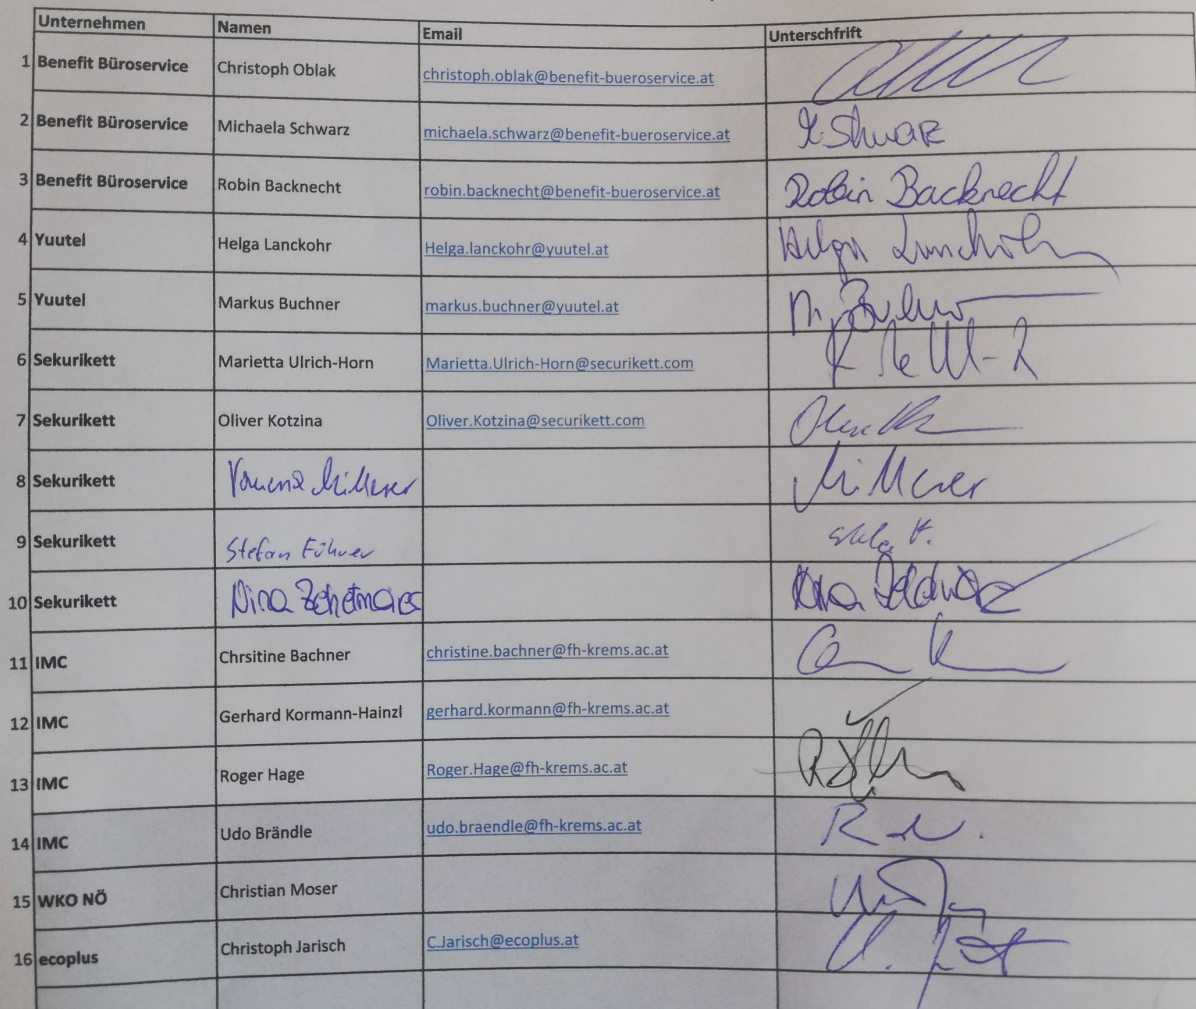 Unternehmen Namen Email Unterschfrift
1 Benefit Büroservice Christoph Oblak christoph.oblak@benefit-bueroservice.at
2 Benefit Büroservice Michaela Schwarz michaela.schwarz@benefit-bueroservice.at
3 Benefit Büroservice Robin Backnecht robin.backnecht@benefit-bueroservice.at Robin Backnecht
4 Yuutel Helga Lanckohr Helga.lanckohr@yuutel.at Helga
5 Yuutel Markus Buchner markus.buchner@yuutel.at
6 Sekurikett Marietta Ulrich-Horn Marietta.Ulrich-Horn@securikett.com
7 Sekurikett Oliver Kotzina Oliver.Kotzina@securikett.com
8 Sekurikett
9 Sekurikett Stefan Führer
10 Sekurikett Nina
11 IMC Chrsitine Bachner christine.bachner@fh-krems.ac.at
12 IMC Gerhard Kormann-Hainzl gerhard.kormann@fh-krems.ac.at
13 IMC Roger Hage Roger.Hage@fh-krems.ac.at
14 IMC Udo Brändle udo.braendle@fh-krems.ac.at
15 WKO NÖ Christian Moser
16 ecoplus Christoph Jarisch C.Jarisch@ecoplus.at